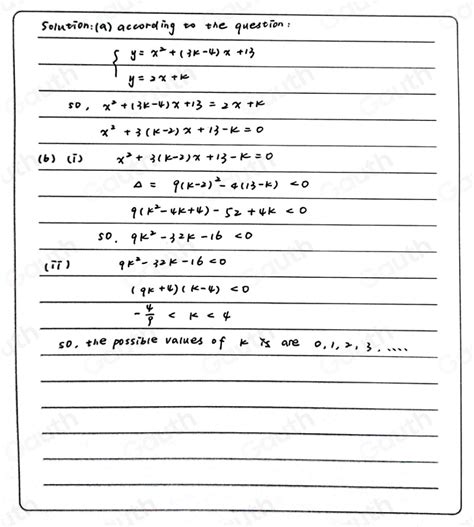 Solution:(a) according to the question:
{ y = x² + (3k-4)x + 13
y = 2x + k
so, x² + (3k-4)x + 13 = 2x + k
x² + 3(k-2)x + 13 - k = 0
(b) (i) x² + 3(k-2)x + 13 - k = 0
Δ = 9(k-2)² - 4(13-k) < 0
9(k² - 4k + 4) - 52 + 4k < 0
so. 9k² - 32k - 16 < 0
(ii) 9k² - 32k - 16 < 0
(9k + 4)(k - 4) < 0
-4/9 < k < 4
so, the possible values of k is are 0, 1, 2, 3, ....